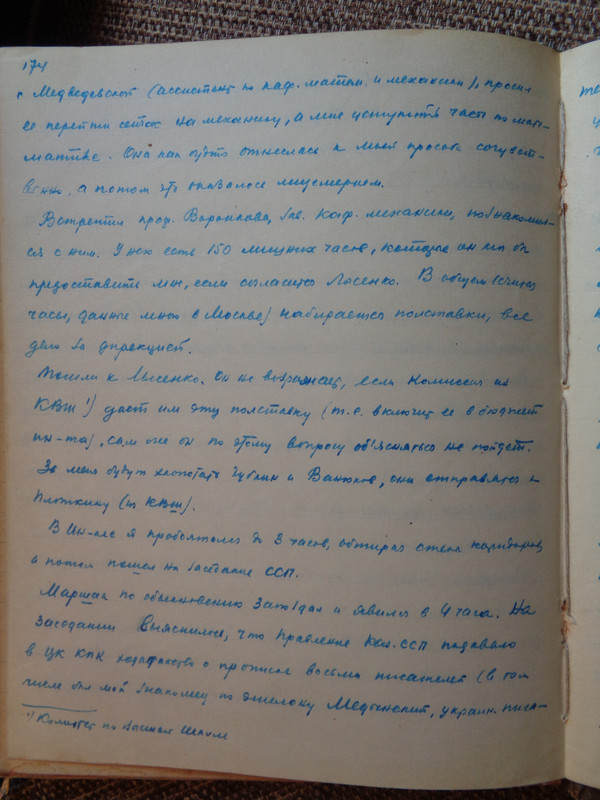 174
с Медведевской (ассистент по каф. матем. и механики), просил
ее перейти целиком на механику, а мне уступить часы по мате-
матике. Она как будто отнеслась к моей просьбе сочувст-
венно, а потом это оказалось лицемерием.
Встретил проф. Воронкова, зав. каф. механики, познакомил-
ся с ним. У него есть 150 лишних часов, которые он мог бы
предоставить мне, если согласится Лысенко. В общем (считая
часы, данные мною в Москве) набирается полставки, все
дело за дирекцией.
Пошли к Лысенко. Он не возражает, если Комиссия из
КВШ ¹) даст им эту полставку (т.е. включит ее в бюджет
ин-та), сам же он по этому вопросу объясняться не пойдет.
За меня будут хлопотать Чуркин и Ванюков, они отправятся к
Плоткину (из КВШ).
В Ин-те я проболтался до 3 часов, обтирая стены коридоров,
а потом пошел на заседание ССП.
Маршак по обыкновению запоздал и явился в 4 часа. На
заседании выяснилось, что Правление Каз. ССП подавало
в ЦК КПК ходатайство о прописке восьми писателей (в том
числе был мой знакомец по эшелону Медынский, украин. писа-
¹) Комитет по высшей школе